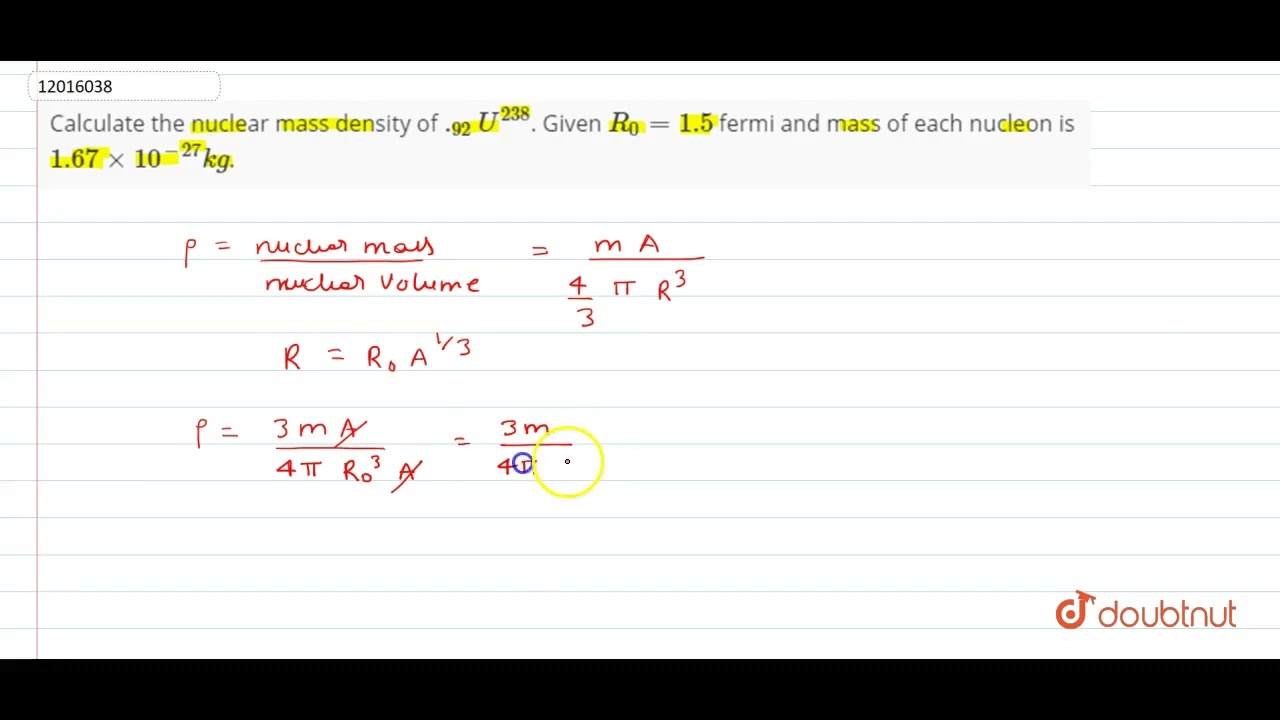 12016038
Calculate the nuclear mass density of .₉₂ U²³⁸. Given R₀ = 1.5 fermi and mass of each nucleon is
1.67 × 10⁻²⁷kg.
ρ = nuclear mass / nuclear volume = m A / (4/3 π R³)
R = R₀ A^1/3
ρ = 3 m A / 4π R₀³ A = 3 m / 4π
doubtnut